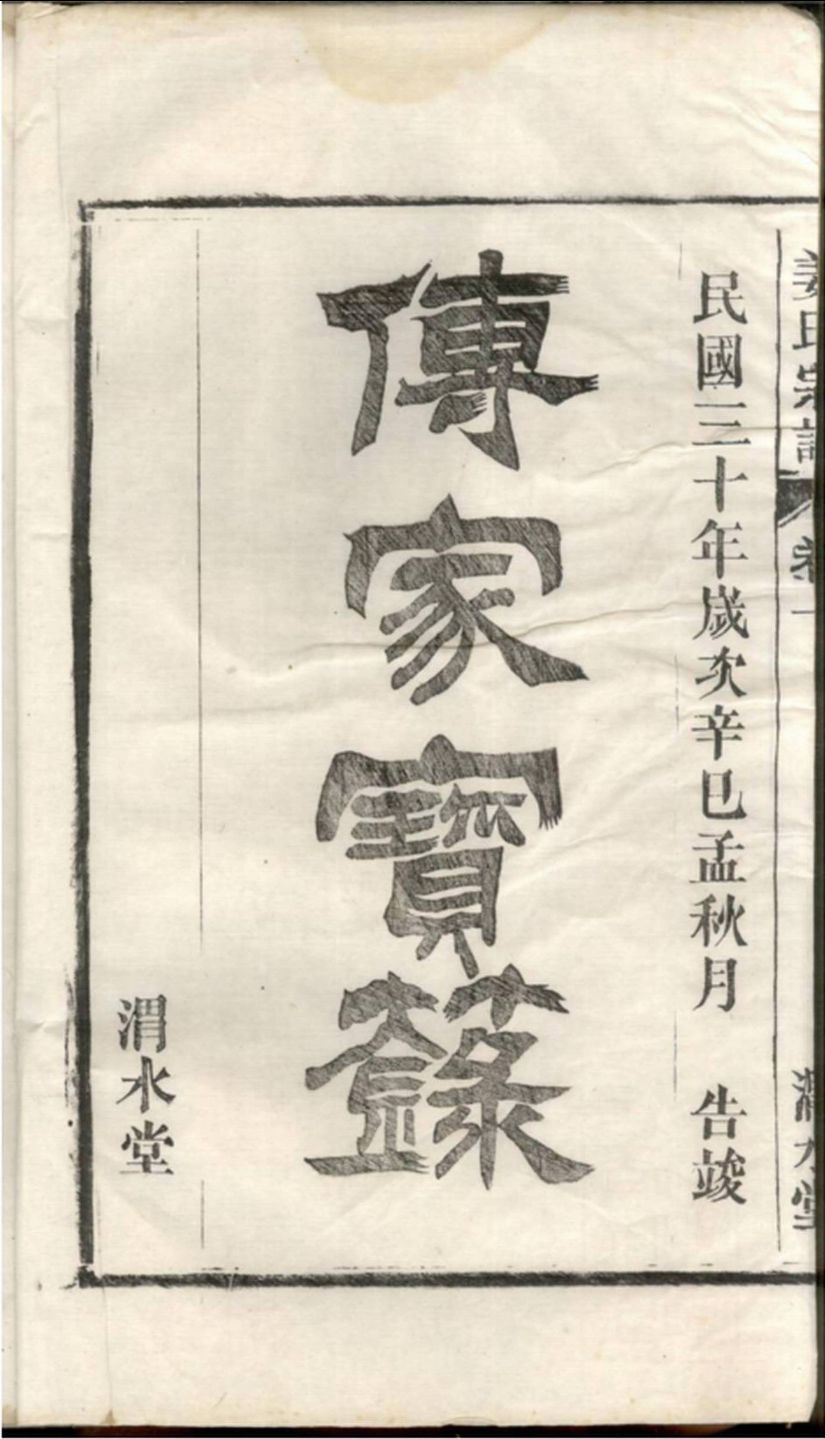 姜氏宗譜 卷一 渭水堂
民國三十年歲次辛巳孟秋月 告竣
傳家寶籙
渭水堂